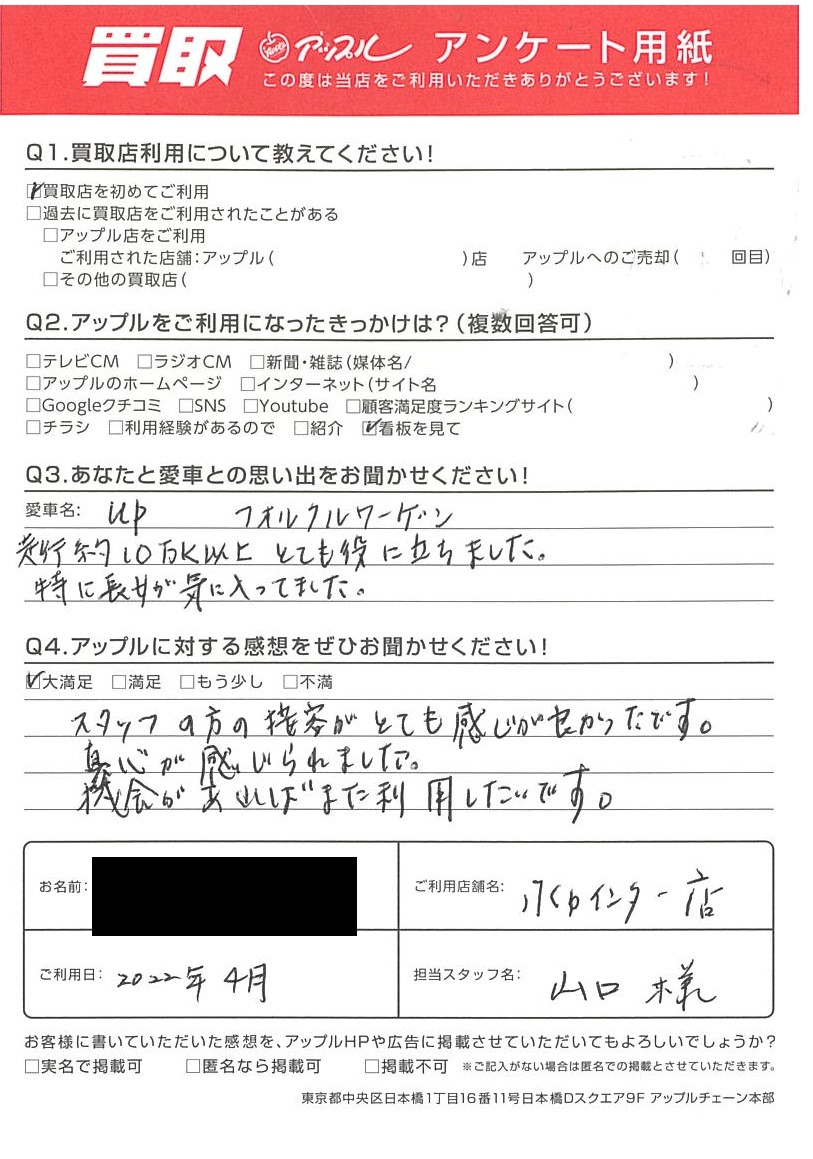 買取 アップル アンケート用紙
この度は当店をご利用いただきありがとうございます!
Q1.買取店利用について教えてください!
☑買取店を初めてご利用
□過去に買取店をご利用されたことがある
□アップル店をご利用
ご利用された店舗:アップル( )店 アップルへのご売却( 回目)
□その他の買取店( )
Q2.アップルをご利用になったきっかけは?(複数回答可)
□テレビCM □ラジオCM □新聞・雑誌(媒体名/ )
□アップルのホームページ □インターネット(サイト名 )
□Googleクチコミ □SNS □Youtube □顧客満足度ランキングサイト( )
□チラシ □利用経験があるので □紹介 ☑看板を見て
Q3.あなたと愛車との思い出をお聞かせください!
愛車名: up フォルクルワーゲン
走行約10万K以上 とても役に立ちました。
特に長女が気に入ってました。
Q4.アップルに対する感想をぜひお聞かせください!
☑大満足 □満足 □もう少し □不満
スタッフの方の接客がとても感じが良かったです。
真心が感じられました。
機会があればまた利用したいです。
お名前: ご利用店舗名: インター店
ご利用日: 2022年4月 担当スタッフ名: 山口様
お客様に書いていただいた感想を、アップルHPや広告に掲載させていただいてもよろしいでしょうか?
□実名で掲載可 □匿名なら掲載可 □掲載不可 ※ご記入がない場合は匿名での掲載とさせていただきます。
東京都中央区日本橋1丁目16番11号日本橋Dスクエア9F アップルチェーン本部